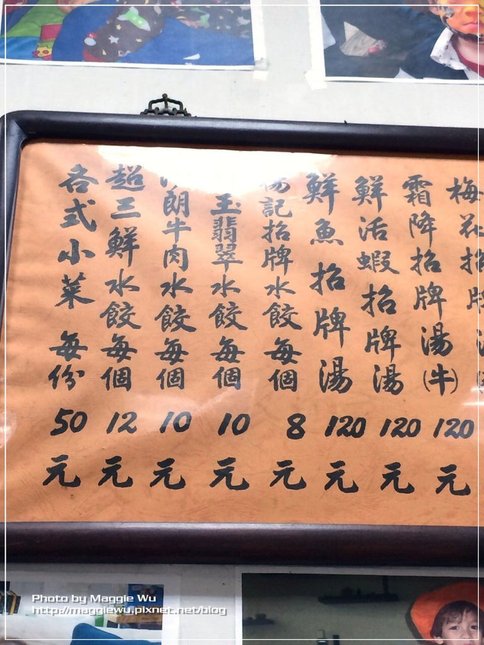 梅花招牌湯
霜降招牌湯(牛) 120元
鮮活蝦招牌湯 120元
鮮魚招牌湯 120元
記招牌水餃每個 8元
玉翡翠水餃每個 10元
朗牛肉水餃每個 10元
超三鮮水餃每個 12元
各式小菜 每份 50元
Photo by Maggie Wu
http://maggiewu.pixnet.net/blog